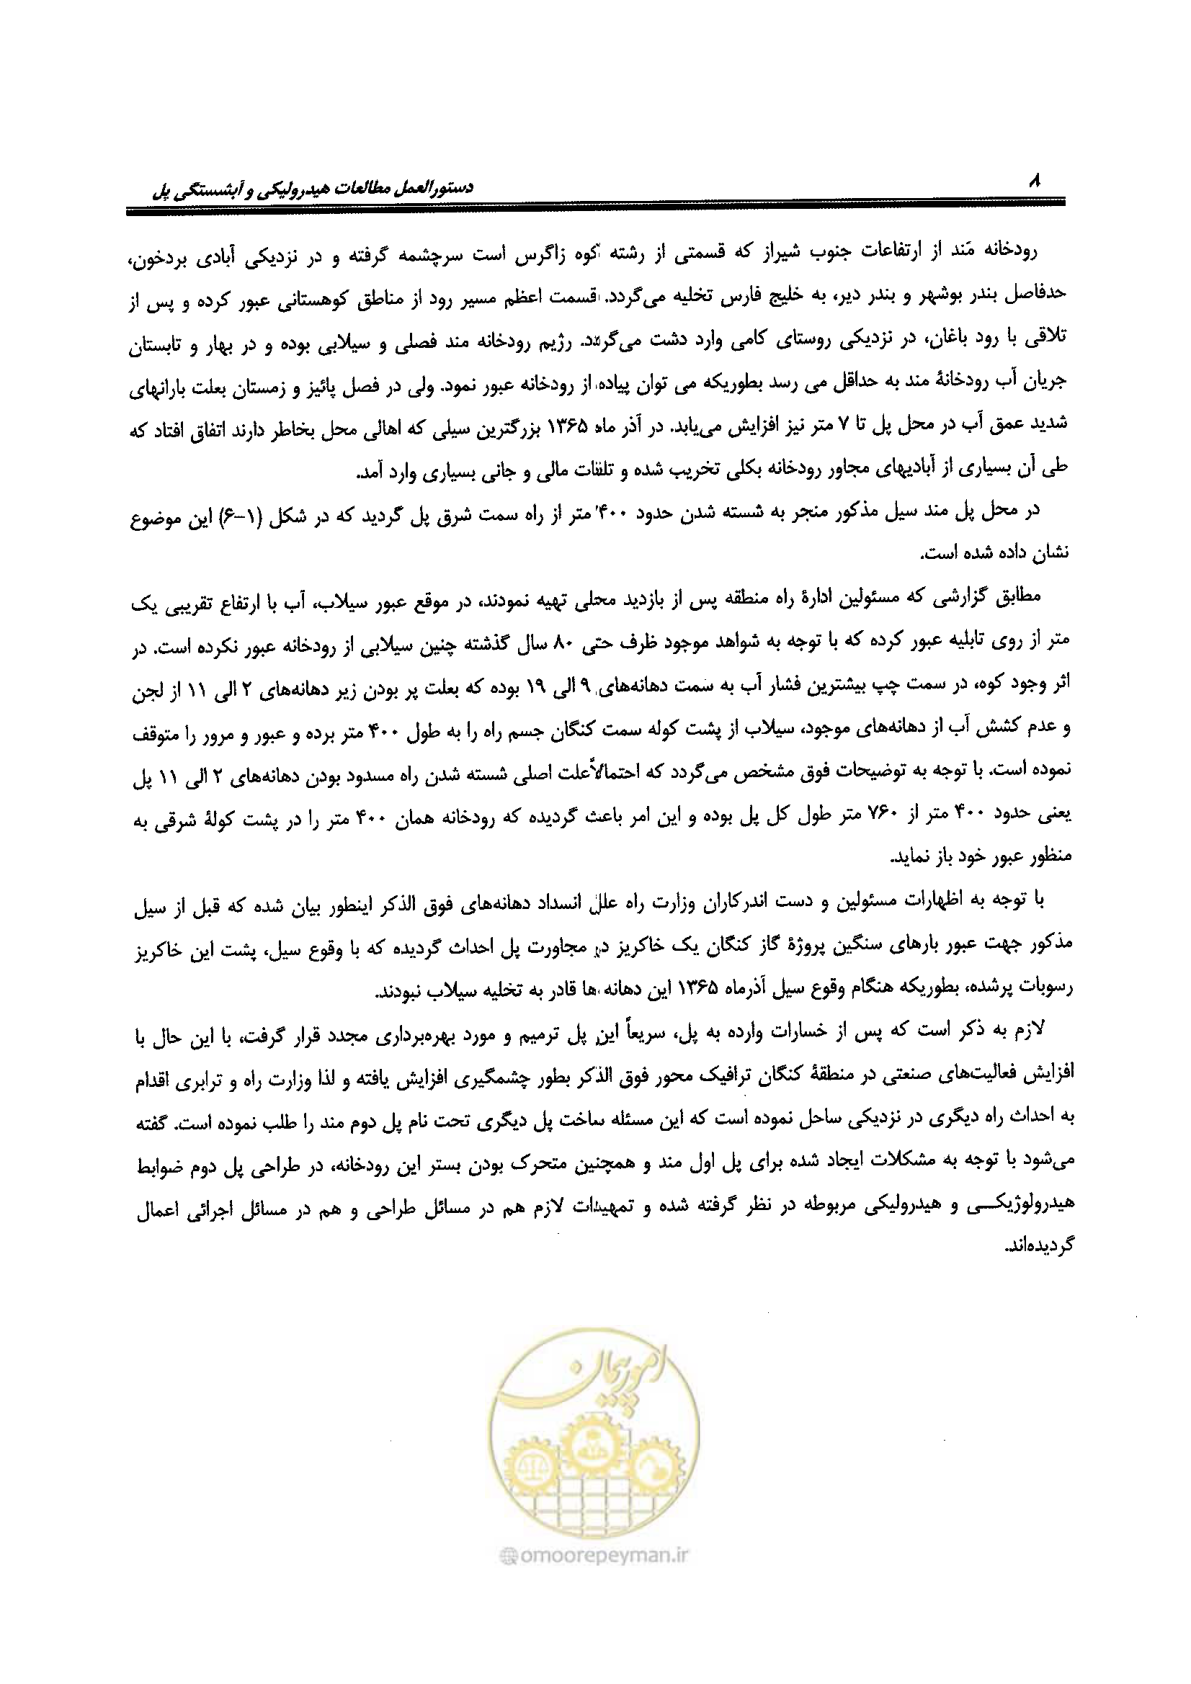 ۸
دستورالعمل مطالعات هیدرولیکی و آبشستگی پل
رودخانه مَند از ارتفاعات جنوب شیراز که قسمتی از رشته کوه زاگرس است سرچشمه گرفته و در نزدیکی آبادی بردخون،
حدفاصل بندر بوشهر و بندر دیر، به خلیج فارس تخلیه می‌گردد. قسمت اعظم مسیر رود از مناطق کوهستانی عبور کرده و پس از
تلاقی با رود باغان، در نزدیکی روستای کامی وارد دشت می‌گردد. رژیم رودخانه مند فصلی و سیلابی بوده و در بهار و تابستان
جریان آب رودخانهٔ مند به حداقل می رسد بطوریکه می توان پیاده از رودخانه عبور نمود. ولی در فصل پائیز و زمستان بعلت بارانهای
شدید عمق آب در محل پل تا ۷ متر نیز افزایش می‌یابد. در آذر ماه ۱۳۶۵ بزرگترین سیلی که اهالی محل بخاطر دارند اتفاق افتاد که
طی آن بسیاری از آبادیهای مجاور رودخانه بکلی تخریب شده و تلفات مالی و جانی بسیاری وارد آمد.
در محل پل مند سیل مذکور منجر به شسته شدن حدود ۴۰۰ متر از راه سمت شرق پل گردید که در شکل (۱-۶) این موضوع
نشان داده شده است.
مطابق گزارشی که مسئولین ادارهٔ راه منطقه پس از بازدید محلی تهیه نمودند، در موقع عبور سیلاب، آب با ارتفاع تقریبی یک
متر از روی تابلیه عبور کرده که با توجه به شواهد موجود ظرف حتی ۸۰ سال گذشته چنین سیلابی از رودخانه عبور نکرده است. در
اثر وجود کوه، در سمت چپ بیشترین فشار آب به سمت دهانه‌های ۹ الی ۱۹ بوده که بعلت پر بودن زیر دهانه‌های ۲ الی ۱۱ از لجن
و عدم کشش آب از دهانه‌های موجود، سیلاب از پشت کوله سمت کنگان جسم راه را به طول ۴۰۰ متر برده و عبور و مرور را متوقف
نموده است. با توجه به توضیحات فوق مشخص می‌گردد که احتمالاً علت اصلی شسته شدن راه مسدود بودن دهانه‌های ۲ الی ۱۱ پل
یعنی حدود ۴۰۰ متر از ۷۶۰ متر طول کل پل بوده و این امر باعث گردیده که رودخانه همان ۴۰۰ متر را در پشت کولهٔ شرقی به
منظور عبور خود باز نماید.
با توجه به اظهارات مسئولین و دست اندرکاران وزارت راه علل انسداد دهانه‌های فوق الذکر اینطور بیان شده که قبل از سیل
مذکور جهت عبور بارهای سنگین پروژهٔ گاز کنگان یک خاکریز در مجاورت پل احداث گردیده که با وقوع سیل، پشت این خاکریز
رسوبات پرشده، بطوریکه هنگام وقوع سیل آذرماه ۱۳۶۵ این دهانه ها قادر به تخلیه سیلاب نبودند.
لازم به ذکر است که پس از خسارات وارده به پل، سریعاً این پل ترمیم و مورد بهره‌برداری مجدد قرار گرفت، با این حال با
افزایش فعالیت‌های صنعتی در منطقهٔ کنگان ترافیک محور فوق الذکر بطور چشمگیری افزایش یافته و لذا وزارت راه و ترابری اقدام
به احداث راه دیگری در نزدیکی ساحل نموده است که این مسئله ساخت پل دیگری تحت نام پل دوم مند را طلب نموده است. گفته
می‌شود با توجه به مشکلات ایجاد شده برای پل اول مند و همچنین متحرک بودن بستر این رودخانه، در طراحی پل دوم ضوابط
هیدرولوژیکـــی و هیدرولیکی مربوطه در نظر گرفته شده و تمهیدات لازم هم در مسائل طراحی و هم در مسائل اجرائی اعمال
گردیده‌اند.
امور پیمان
omoorepeyman.ir